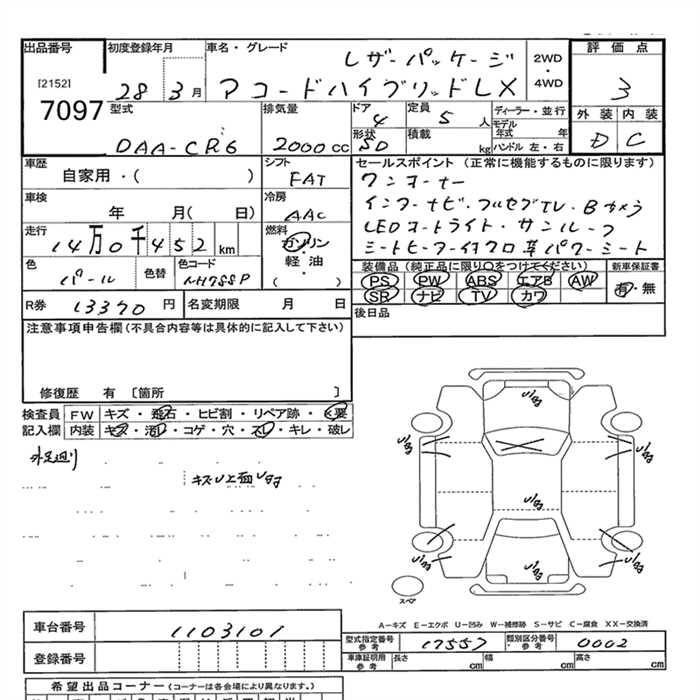 出品番号 初度登録年月 車名・グレード 評価点
レザーパッケージ 2WD・4WD
[2152] 28 3月 アコードハイブリッドLX 3
7097 型式 排気量 ドア 4 定員 5人 ディーラー・並行 外装 内装
モデル年式 年
DAA-CR6 2000cc 形状 SD 積載 kg ハンドル 左・右 D C
車歴 シフト セールスポイント (正常に機能するものに限ります)
自家用・( ) FAT ワンオーナー
車検 冷房 インターナビ・フルセグTV・Bカメラ
年 月( 日) AAC LEDオートライト・サンルーフ
走行 燃料 シートヒーター付クロ革パワーシート
14万0千452km ガソリン・軽油 ( )
色 色替 色コード 装備品 (純正品に限り○をつけてください) 新車保証書
パール NH788P PS PW ABS エアB AW 有・無
SR ナビ TV カワ
R券 13370円 名変期限 月 日 後日品
注意事項申告欄(不具合内容等は具体的に記入して下さい)
修復歴 有 [箇所 ]
検査員 FW キズ・飛石・ヒビ割・リペア跡・×要
記入欄 内装 キズ・汚れ・コゲ・穴・スレ・キレ・破レ
外足廻り
スペア
A-キズ E-エクボ U-凹み W-補修跡 S-サビ C-腐食 XX-交換済
車台番号 1103101
型式指定番号 参考 17557 類別区分番号・参考 0002
登録番号 車庫証明用参考 長さ cm 幅 cm 高さ cm
希望出品コーナー (コーナーは各会場により異なります。)